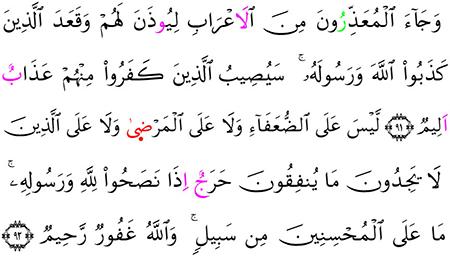 وَجَآءَ اَ۬لْمُعَذِّرُونَ مِنَ اَ۬لَاعْرَابِ لِيُوذَنَ لَهُمْ وَقَعَدَ اَ۬لذِينَ
كَذَبُواْ اُ۬للَّهَ وَرَسُولَهُۥۖ سَيُصِيبُ اُ۬لذِينَ كَفَرُواْ مِنْهُمْ عَذَابٌ
اَلِيمٌ ٩١ لَّيْسَ عَلَي اَ۬لضُّعَفَآءِ وَلَا عَلَي اَ۬لْمَرْض۪يٰ وَلَا عَلَي اَ۬لذِينَ
لَا يَجِدُونَ مَا يُنفِقُونَ حَرَجٌ اِذَا نَصَحُواْ لِلهِ وَرَسُولِهِۦۖ
مَا عَلَي اَ۬لْمُحْسِنِينَ مِن سَبِيلٖۖ وَاللَّهُ غَفُورٞ رَّحِيمٞ ٩٢